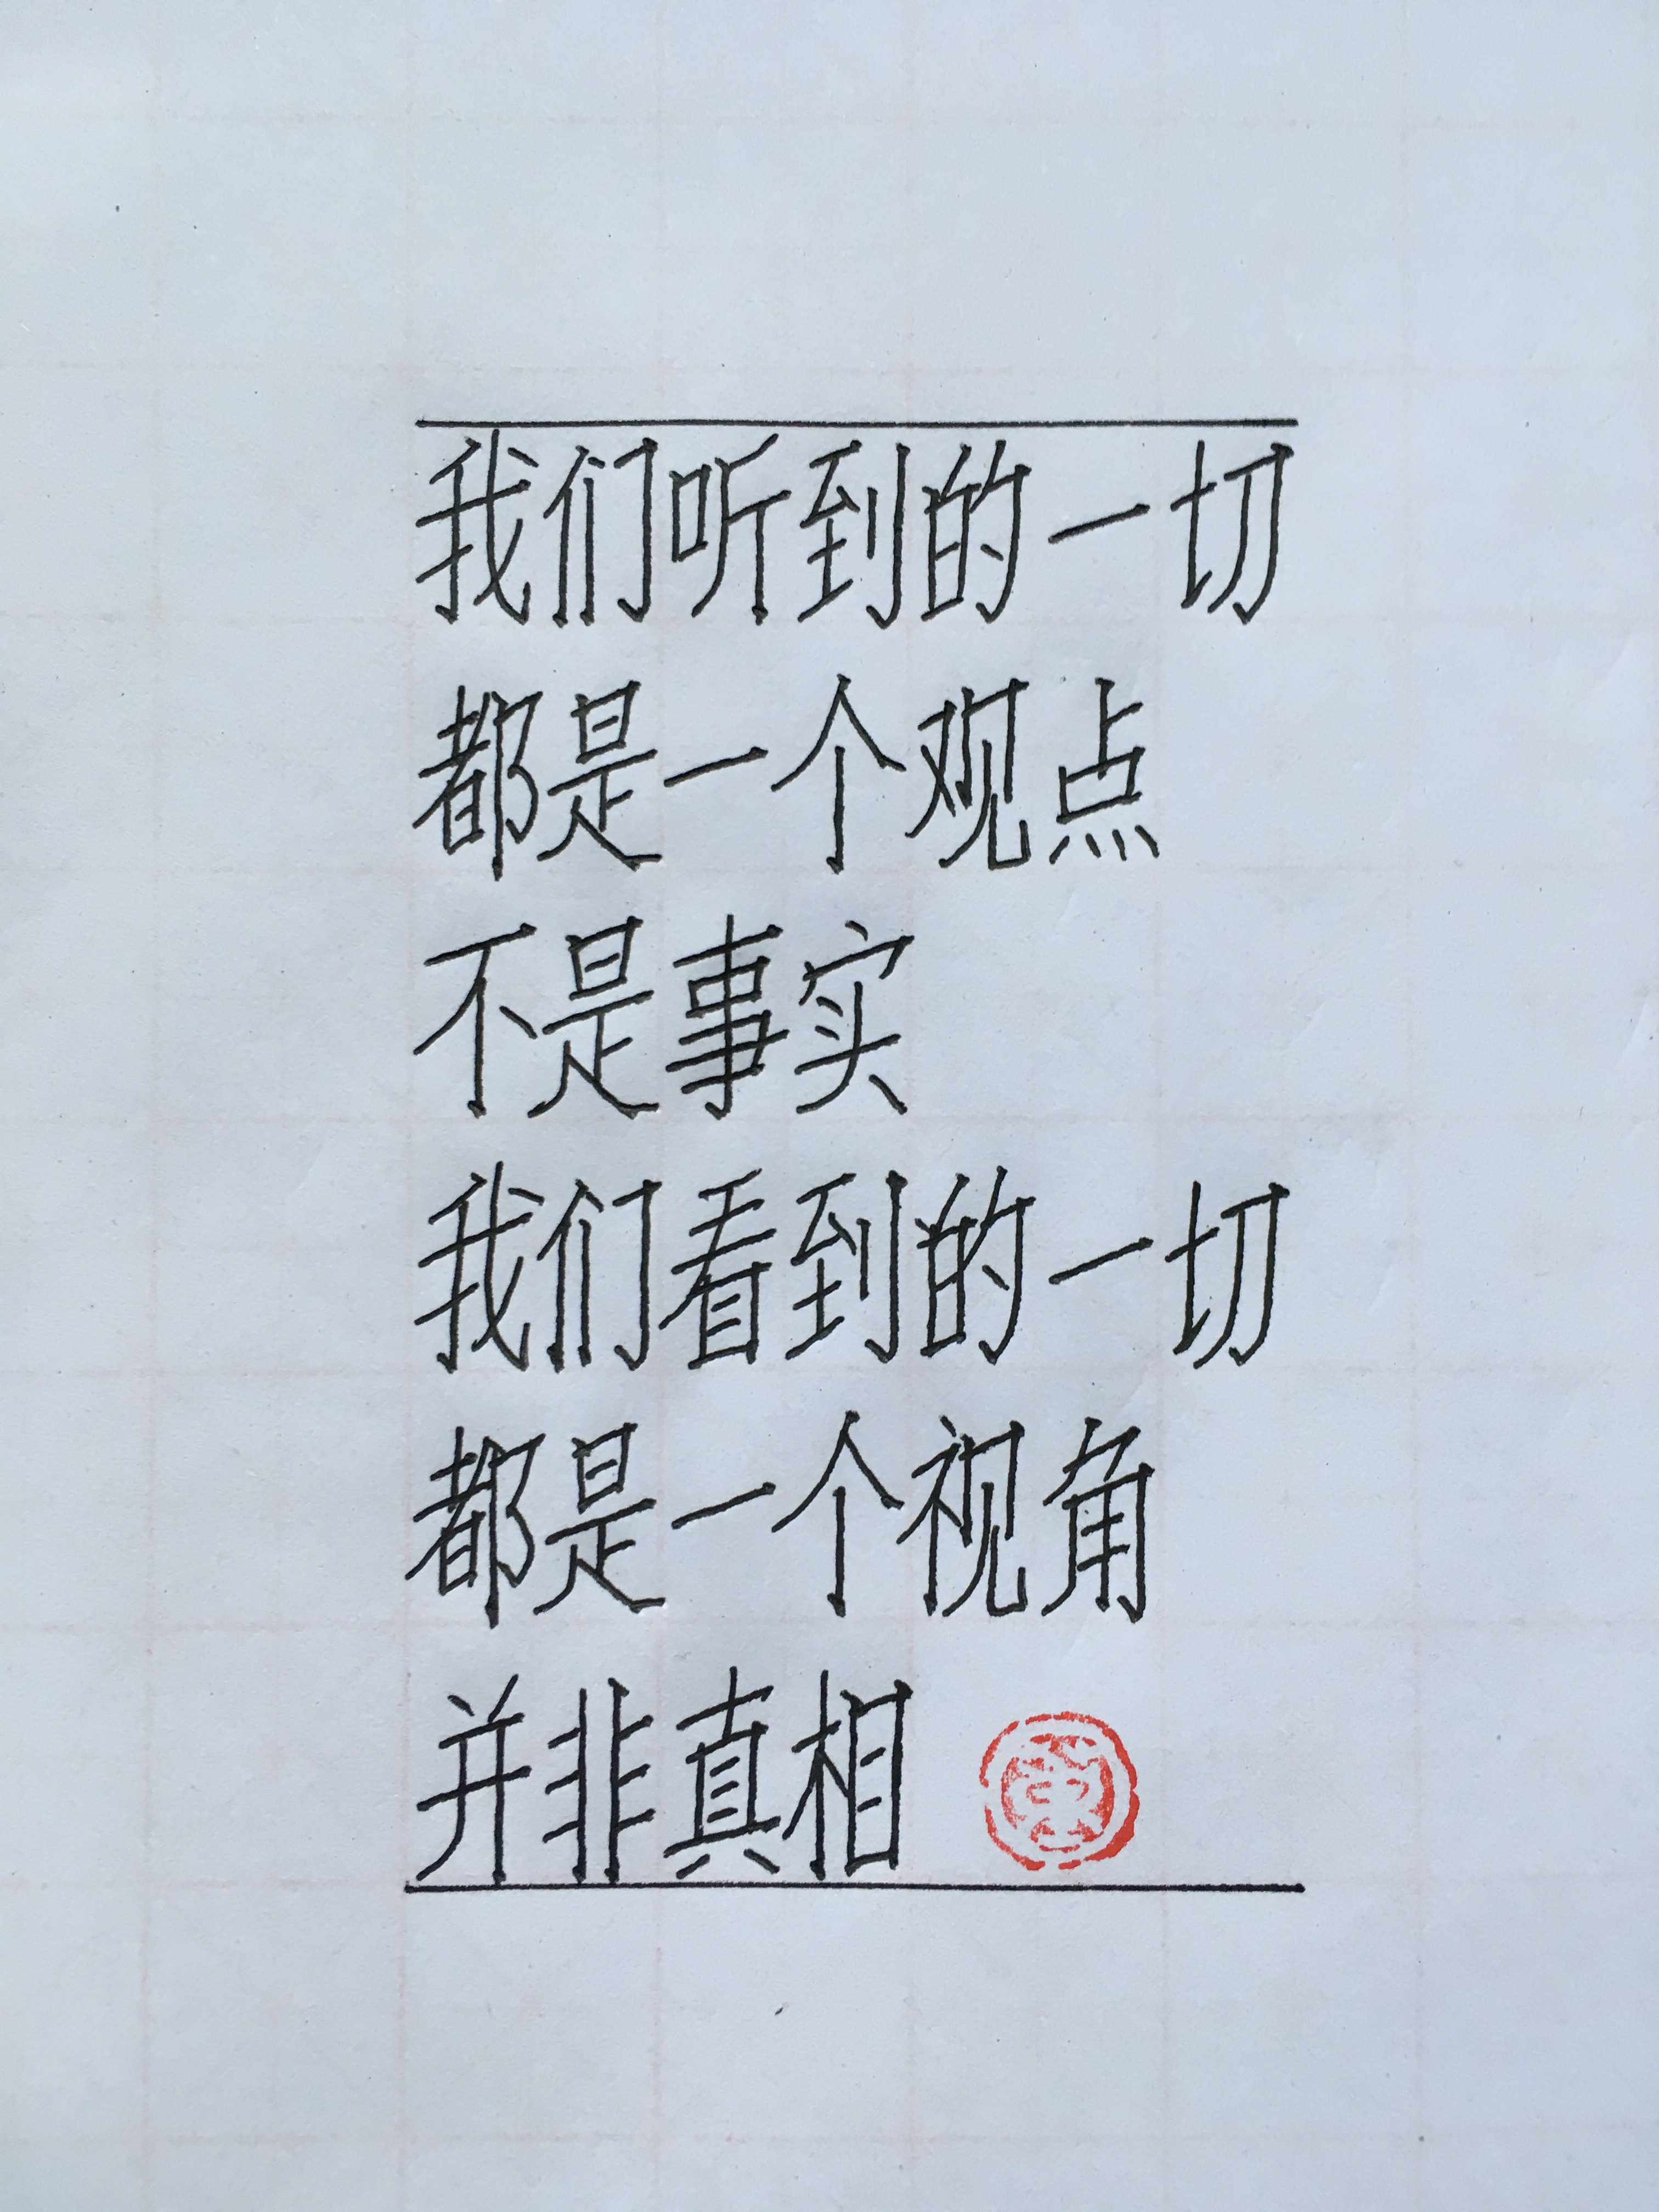 我们听到的一切
都是一个观点
不是事实
我们看到的一切
都是一个视角
并非真相